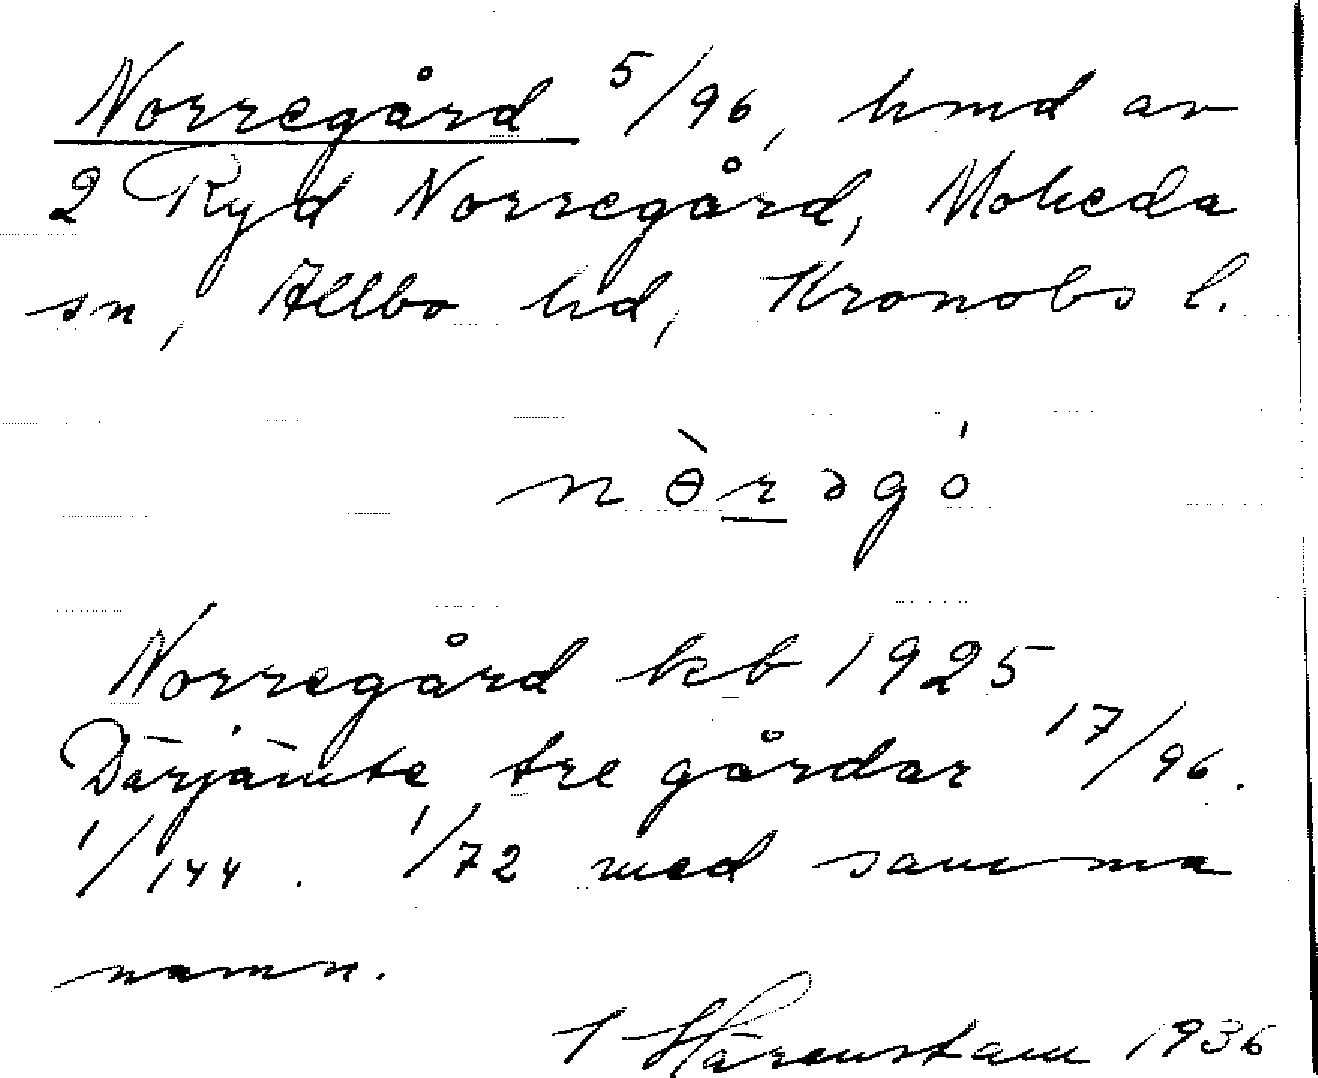 Norregård 5/96, hmd av
2 Ryd Norregård, Moheda
sn, Allbo hd, Kronobs l.
nɵ̀rəgó
Norregård kb 1925
Därjämte tre gårdar 17/96.
1/144. 1/72 med samma
namn.
Härenstam 1936